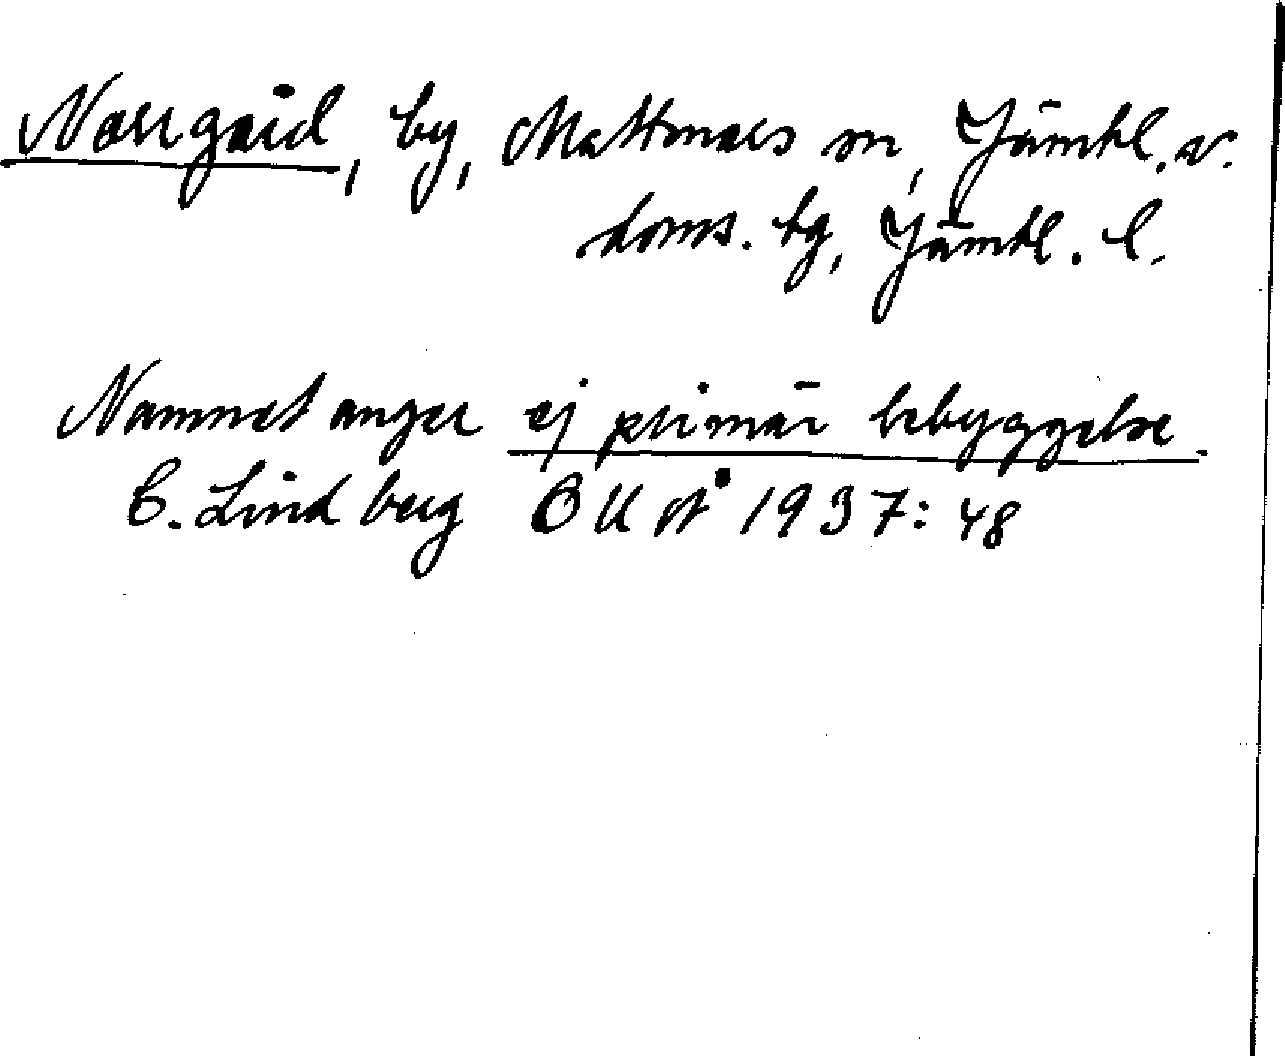 Norrgård, by, Mattmars sn, Jämtl. v.
doms. bg, Jämtl. l.
Namnet anger ej primär bebyggelse
C. Lindberg 1937: 48